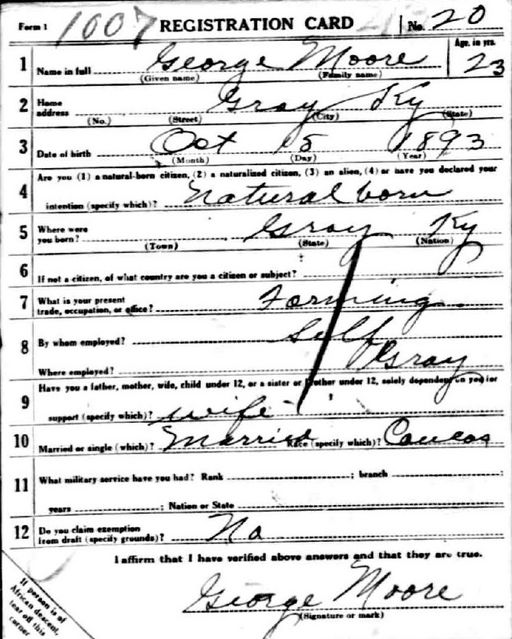 Form 1 1007 REGISTRATION CARD No. 20
1 Name in full George Moore Age, in yrs. 23
(Given name) (Family name)
2 Home address Gray Ky
(No.) (Street) (City) (State)
3 Date of birth Oct 15 1893
(Month) (Day) (Year)
4 Are you (1) a natural-born citizen, (2) a naturalized citizen, (3) an alien, (4) or have you declared your
intention (specify which)? Natural born
5 Where were you born? Gray Ky
(Town) (State) (Nation)
6 If not a citizen, of what country are you a citizen or subject?
7 What is your present trade, occupation, or office? Farming
8 By whom employed? Self
Where employed? Gray
9 Have you a father, mother, wife, child under 12, or a sister or brother under 12, solely dependent on you for
support (specify which)? wife
10 Married or single (which)? Married Race (specify which)? Caucas
11 What military service have you had? Rank ; branch
years ; Nation or State
12 Do you claim exemption from draft (specify grounds)? No
I affirm that I have verified above answers and that they are true.
George Moore
(Signature or mark)
If person is of
African descent,
tear off this
corner